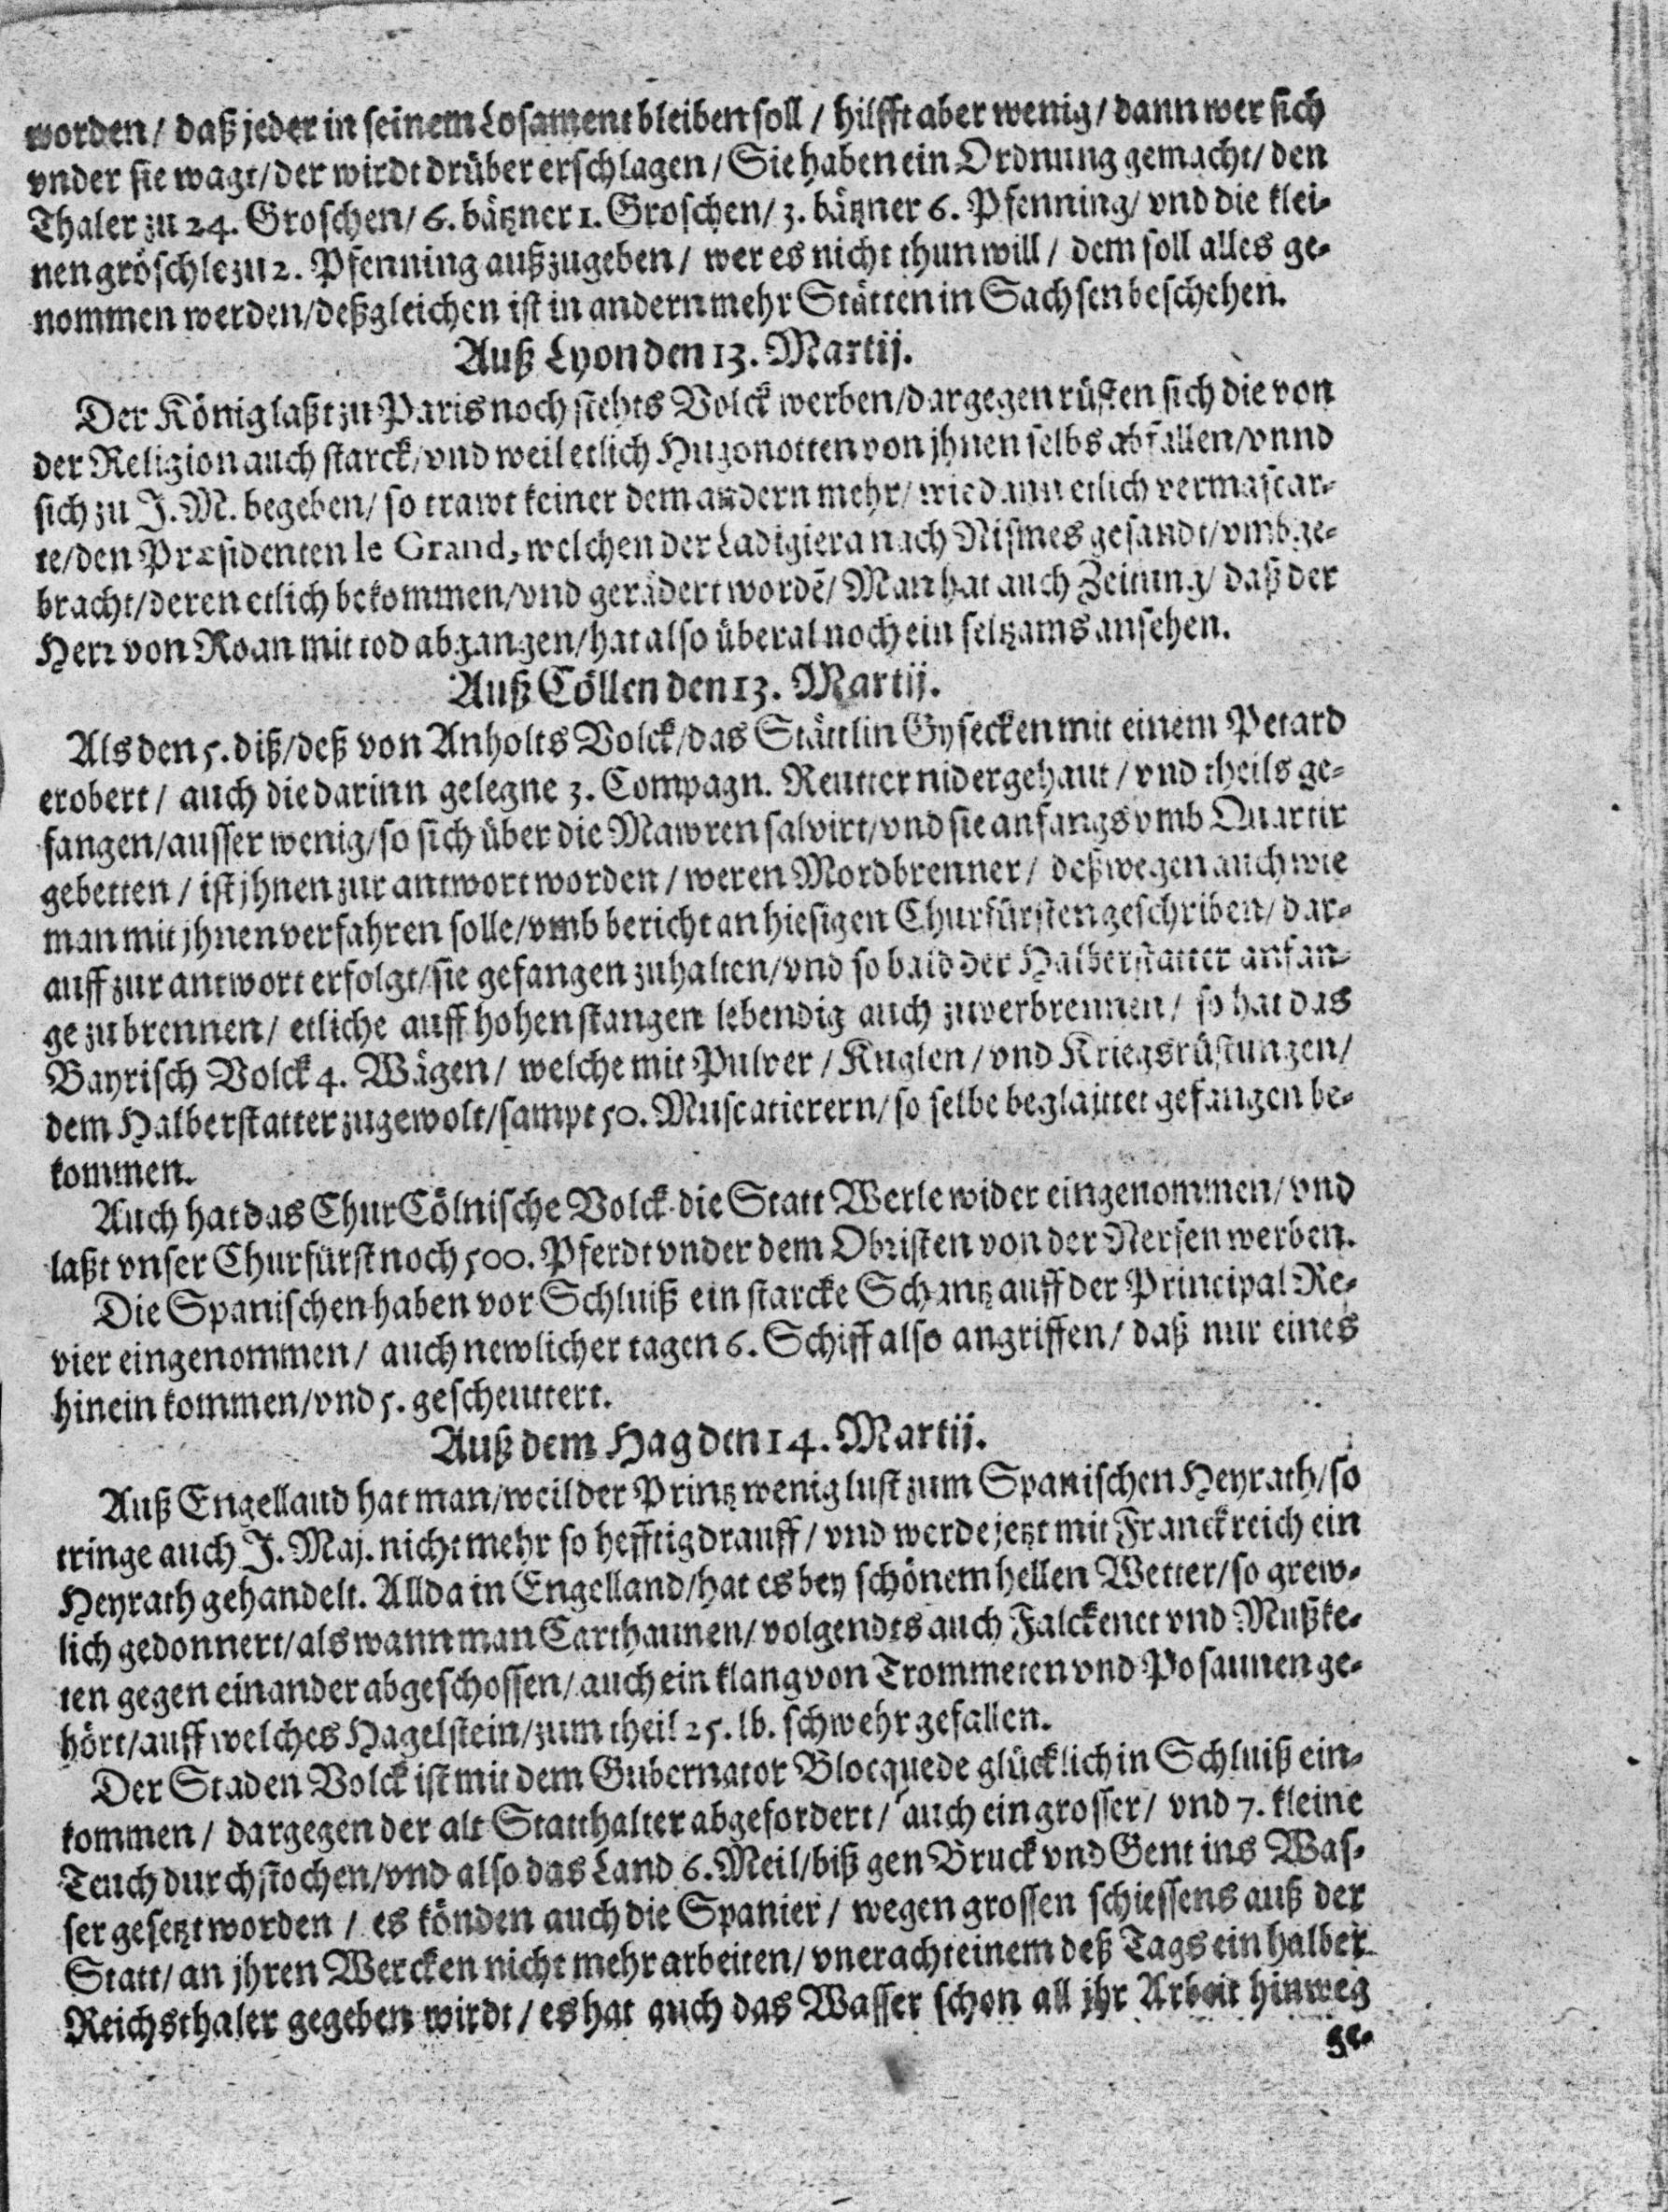 worden/ daß jeder in seinem Losament bleiben soll / hilfft aber wenig/ dann wer sich
vnder sie wagt/der wirdt drüber erschlagen/Sie haben ein Ordnung gemacht/ den
Thaler zu 24. Groschen/ 6. bätzner 1. Groschen/ 3. bätzner 6. Pfenning/ vnd die klei-
nen gröschle zu 2. Pfenning außzugeben/ wer es nicht thun will/ dem soll alles ge-
nommen werden/deßgleichen ist in andern mehr Stätten in Sachsen beschehen.
Auß Lyon den 13. Martij.
Der König laßt zu Paris noch stehts Volck werben/dargegen rüsten sich die von
der Religion auch starck/vnd weil etlich Hugonotten von jhnen selbs abfallen/vnnd
sich zu J. M. begeben/ so trawt keiner dem andern mehr/ wie dann etlich vermascar-
te/den Præsidenten le Grand, welchen der Ladigiera nach Nismes gesandt/vmbge-
bracht/deren etlich bekommen/vnd gerädert wordē/ Man hat auch Zeitung/ daß der
Herr von Roan mit tod abgangen/hat also überal noch ein seltzams ansehen.
Auß Cöllen den 13. Martij.
Als den 5. diß/deß von Anholts Volck/das Stättlin Gysecken mit einem Petard
erobert/ auch die darinn gelegne 3. Compagn. Reutter nidergehaut/ vnd theils ge-
fangen/ausser wenig/so sich über die Mawren salvirt/vnd sie anfangs vmb Quartir
gebetten/ ist jhnen zur antwort worden/ weren Mordbrenner/ deßwegen auch wie
man mit jhnen verfahren solle/vmb bericht an hiesigen Churfürsten geschriben/ dar-
auff zur antwort erfolgt/sie gefangen zuhalten/vnd so bald der Halberstatter anfan-
ge zu brennen/ etliche auff hohen stangen lebendig auch zuverbrennen/ so hat das
Bayrisch Volck 4. Wägen/ welche mit Pulver/ Kuglen/ vnd Kriegsrüstungen/
dem Halberstatter zugewolt/sampt 50. Muscatierern/so selbe beglaittet gefangen be-
kommen.
Auch hat das ChurCölnische Volck die Statt Werle wider eingenommen/vnd
laßt vnser Churfürst noch 500. Pferdt vnder dem Obristen von der Nersen werben.
Die Spanischen haben vor Schluiß ein starcke Schantz auff der Principal Re-
vier eingenommen/ auch newlicher tagen 6. Schiff also angriffen/ daß nur eines
hinein kommen/vnd 5. gescheuttert.
Auß dem Hag den 14. Martij.
Auß Engelland hat man/weil der Printz wenig lust zum Spanischen Heyrath/so
tringe auch J. Maj. nicht mehr so hefftig drauff/ vnd werde jetzt mit Franckreich ein
Heyrath gehandelt. Allda in Engelland/hat es bey schönem hellen Wetter/so grew-
lich gedonnert/als wann man Carthaunen/volgendts auch Falckenet vnd Mußke-
ten gegen einander abgeschossen/auch ein klang von Trommeten vnd Posaunen ge-
hört/auff welches Hagelstein/zum theil 25. lb. schwehr gefallen.
Der Staden Volck ist mit dem Gubernator Blocquede glücklich in Schluiß ein-
kommen/ dargegen der alt Statthalter abgefordert/ auch ein grosser/ vnd 7. kleine
Teuch durchstochen/vnd also das Land 6. Meil/biß gen Bruck vnd Gent ins Was-
ser gesetzt worden/ es könden auch die Spanier/ wegen grossen schiessens auß der
Statt/an jhren Wercken nicht mehr arbeiten/ vneracht einem deß Tags ein halber
Reichsthaler gegeben wirdt/es hat auch das Wasser schon all jhr Arbeit hinweg
ge-